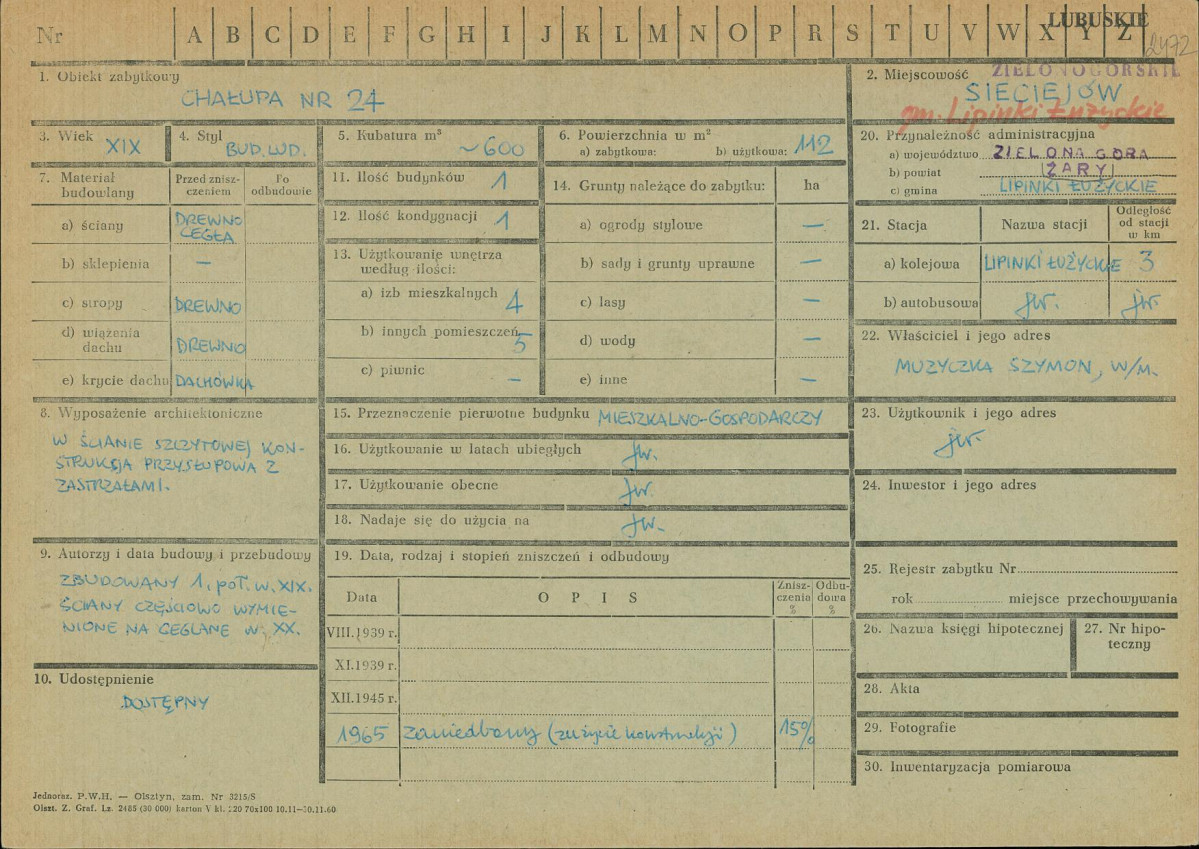 Nr A B C D E F G H I J K L M N O P R S T U V W X Y Z LUBUSKIE
2472
1. Obiekt zabytkowy
CHAŁUPA NR 24
2. Miejscowość ZIELONOGÓRSKIE
SIECIEJÓW
gm. Lipinki Łużyckie
3. Wiek XIX
4. Styl BUD. LUD.
5. Kubatura m³ ~600
6. Powierzchnia w m²
a) zabytkowa: b) użytkowa: 112
7. Materiał budowlany
Przed zniszczeniem
Po odbudowie
a) ściany DREWNO CEGŁA
b) sklepienia —
c) stropy DREWNO
d) wiązenia dachu DREWNO
e) krycie dachu DACHÓWKA
8. Wyposażenie architektoniczne
W ŚCIANIE SZCZYTOWEJ KON-
STRUKCJA PRZYSŁUPOWA Z
ZASTRZAŁAMI.
9. Autorzy i data budowy i przebudowy
ZBUDOWANY 1. POŁ. W. XIX.
ŚCIANY CZĘŚCIOWO WYMIE-
NIONE NA CEGLANE W. XX.
10. Udostępnienie
DOSTĘPNY
11. Ilość budynków 1
12. Ilość kondygnacji 1
13. Użytkowanie wnętrza
według ilości:
a) izb mieszkalnych 4
b) innych pomieszczeń 5
c) piwnic —
14. Grunty należące do zabytku: ha
a) ogrody stylowe —
b) sady i grunty uprawne —
c) lasy —
d) wody —
e) inne —
15. Przeznaczenie pierwotne budynku MIESZKALNO-GOSPODARCZY
16. Użytkowanie w latach ubiegłych jw.
17. Użytkowanie obecne jw.
18. Nadaje się do użycia na jw.
19. Data, rodzaj i stopień zniszczeń i odbudowy
Data OPIS Znisz-czenia % Odbu-dowa %
VIII.1939 r.
XI.1939 r.
XII.1945 r.
1965 zaniedbany (zużycie konstrukcji) 15%
20. Przynależność administracyjna
a) województwo ZIELONA GÓRA
b) powiat ŻARY
c) gmina LIPINKI ŁUŻYCKIE
21. Stacja Nazwa stacji Odległość od stacji w km
a) kolejowa LIPINKI ŁUŻYCKIE 3
b) autobusowa jw. jw.
22. Właściciel i jego adres
MUZYCZKA SZYMON, W/M.
23. Użytkownik i jego adres
jw.
24. Inwestor i jego adres
25. Rejestr zabytku Nr
rok miejsce przechowywania
26. Nazwa księgi hipotecznej
27. Nr hipo-
teczny
28. Akta
29. Fotografie
30. Inwentaryzacja pomiarowa
Jednoraz. P.W.H. — Olsztyn, zam. Nr 3215/S
Olszt. Z. Graf. Lz. 2485 (30 000) karton V kl. 220 70x100 10.11—30.11.60